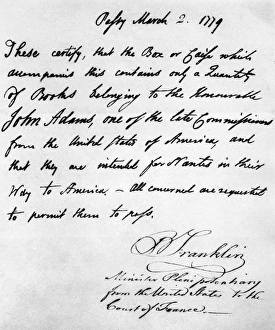 Passy March 2. 1779
These certify, that the Box or Case which
accompanies this contains only a Quantity
of Books belonging to the Honourable
John Adams, one of the late Commissioners
from the United States of America, and
that they are intended for Nantes in their
Way to America. — All concerned are requested
to permit them to pass.
B Franklin
Minister Plenipotentiary
from the United States to the
Court of France.